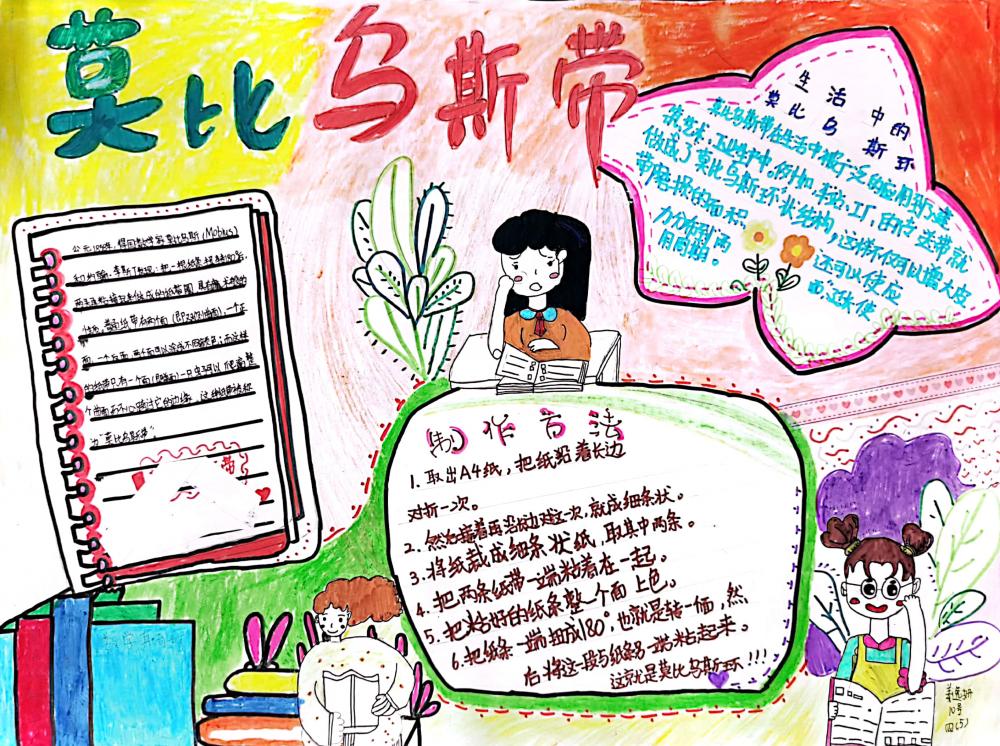 莫比乌斯带
生活中的
莫比乌斯环
莫比乌斯带在生活中被广泛的应用到了建
筑艺术,工业生产中,例如:车站、工厂的传送带就
做成了莫比乌斯环状结构,这样不仅可以增大皮
带磨损的面积 还可以使应
力分布到两面 延长使
用周期。
公元1858年,德国数学家莫比乌斯(Mobius)
和约翰·李斯丁发现:把一根纸条扭转180°后,
两头再粘接起来做成的纸带圈,具有魔术般的
性质。普通纸带有两个面(即双侧曲面),一个正
面,一个反面,两个面可以涂成不同的颜色;而这样
的纸带只有一个面(即单面),一只虫子可以爬遍整
个曲面而不必跨过它的边缘。这种纸带被称
为“莫比乌斯带”。
制作方法
1.取出A4纸,把纸沿着长边
对折一次。
2.然后接着再沿边对这次,就成细条状。
3.将纸裁成细条状纸,取其中两条。
4.把两条纸带一端粘着在一起。
5.把粘好的纸条整个面上色。
6.把纸条一端扭成180°,也就是转一面,然
后将这一段与纸条另一端粘起来。
这就是莫比乌斯环!!!
10号
四(5)